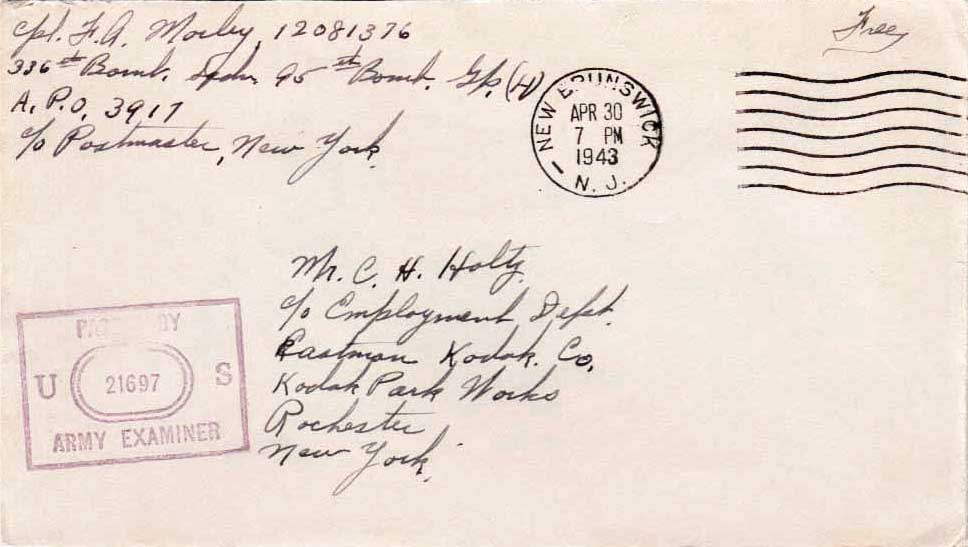 Cpl. F.A. Morley, 12081376
336th Bomb. Sqdn. 95th Bomb. Gp. (H)
A.P.O. 3917
c/o Postmaster, New York
Free
NEW BRUNSWICK
APR 30
7 PM
1943
N. J.
Mr. C. H. Holtz
c/o Employment Dept.
Eastman Kodak Co.
Kodak Park Works
Rochester
New York.
PASSED BY
U 21697 S
ARMY EXAMINER